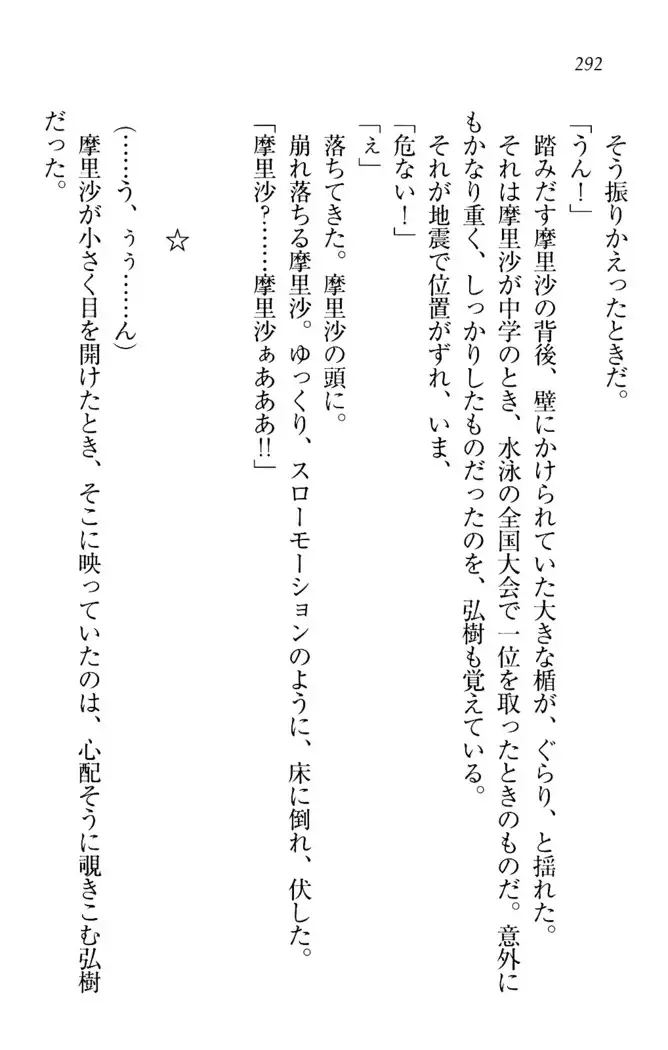 292
そう振りかえったときだ。
「うん！」
踏みだす摩里沙の背後、壁にかけられていた大きな楯が、ぐらり、と揺れた。
それは摩里沙が中学のとき、水泳の全国大会で一位を取ったときのものだ。意外に
もかなり重く、しっかりしたものだったのを、弘樹も覚えている。
それが地震で位置がずれ、いま、
「危ない！」
「え」
落ちてきた。摩里沙の頭に。
崩れ落ちる摩里沙。ゆっくり、スローモーションのように、床に倒れ、伏した。
「摩里沙？……摩里沙ぁあああ!!」
☆
(……う、ぅぅ……ん)
摩里沙が小さく目を開けたとき、そこに映っていたのは、心配そうに覗きこむ弘樹
だった。